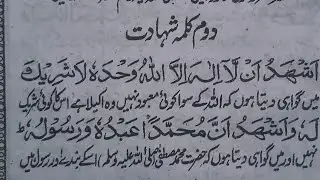 دوم کلمہ شہادت
اَشْهَدُ اَنْ لَّآ اِلٰهَ اِلَّا اللّٰهُ وَحْدَهٗ لَا شَرِيْكَ
میں گواہی دیتا ہوں کہ اللہ کے سوا کوئی معبود نہیں وہ اکیلا ہے اس کا کوئی شریک
لَهٗ وَاَشْهَدُ اَنَّ مُحَمَّدًا عَبْدُهٗ وَرَسُوْلُهٗ ط
نہیں اور میں گواہی دیتا ہوں کہ حضرت محمد مصطفیٰ (صلی اللہ علیہ وسلم) اسکے بندے اور رسول ہیں